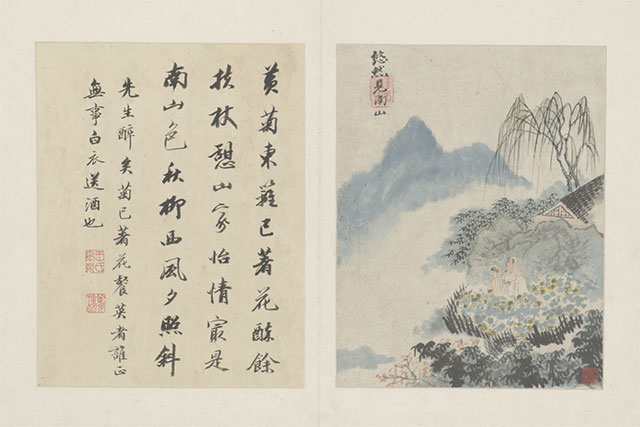 悠然見南山
黃菊東籬已著花餘
扶杖憩山家怡情㝡是
南山色秋柳西風夕照斜
先生醉矣菊已著花餐英者誰正
無事白衣送酒也